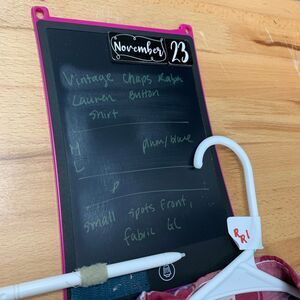 November 23
Vintage Chaps Ralph
Lauren Button
shirt
M plum/blue
L
P
small spots front,
fabric GC
RR1